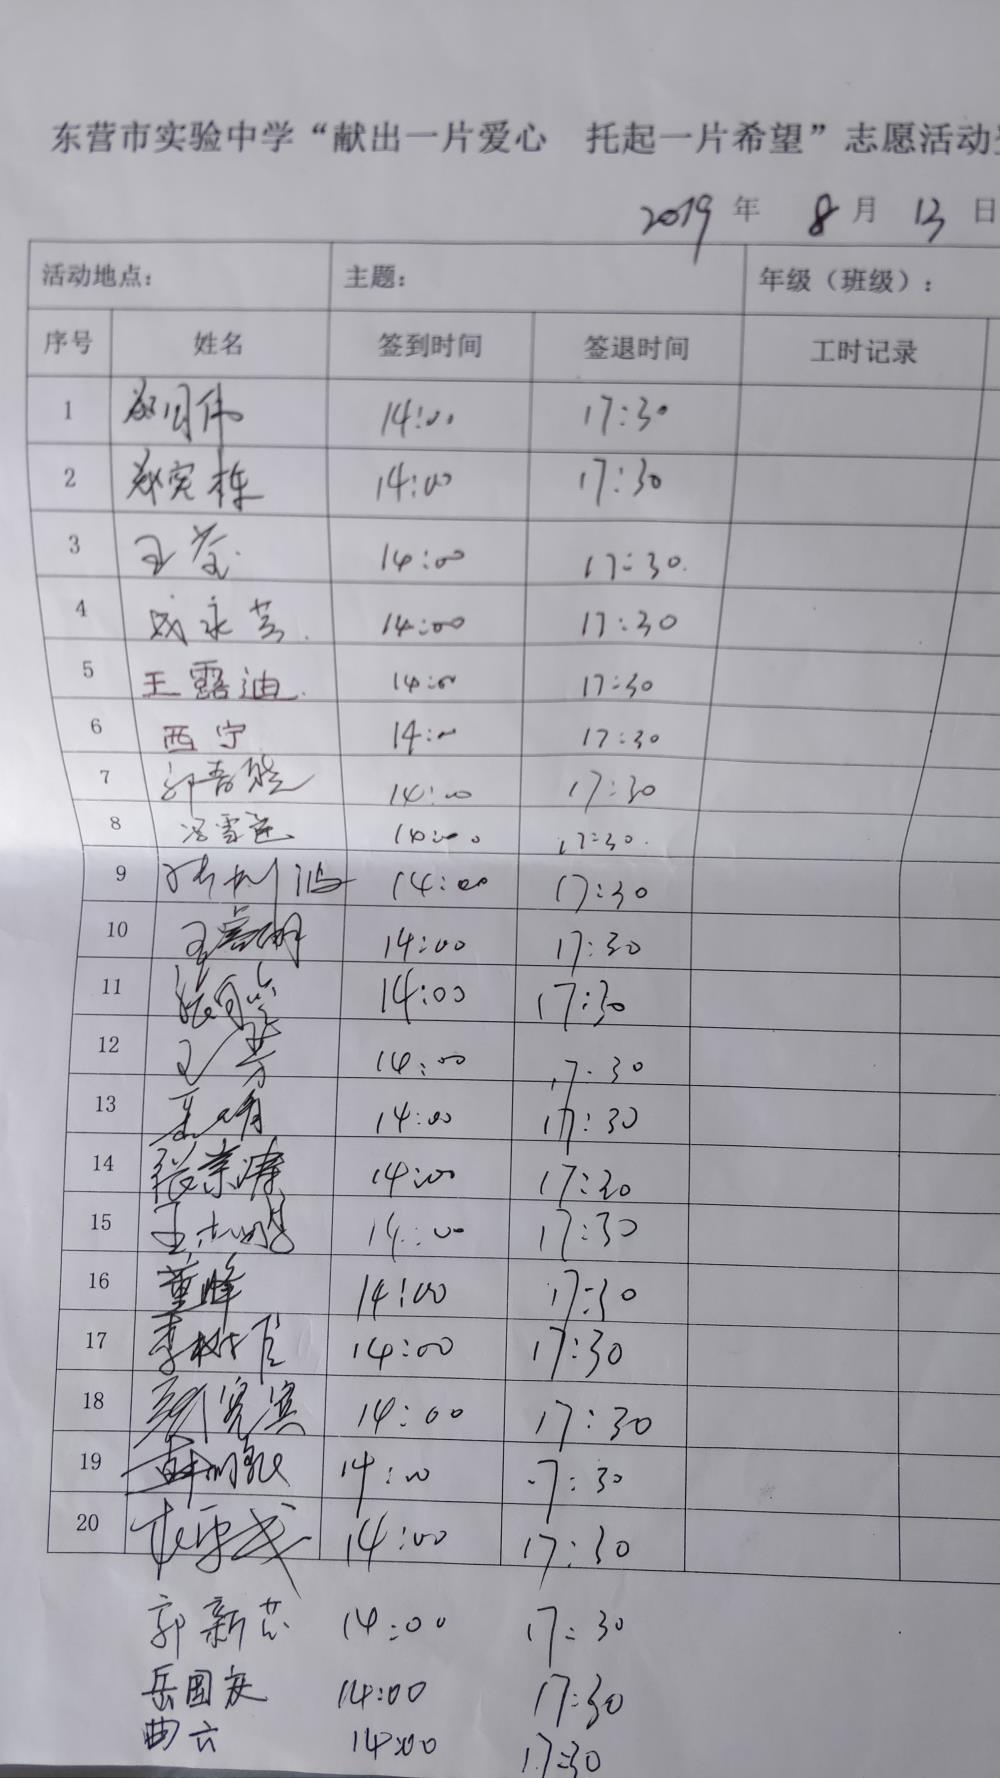 东营市实验中学“献出一片爱心 托起一片希望”志愿活动
2019 年 8 月 13 日
活动地点： 主题： 年级（班级）：
序号 姓名 签到时间 签退时间 工时记录
1 14:00 17:30
2 郑宪栋 14:00 17:30
3 王莹 14:00 17:30
4 成永芸 14:00 17:30
5 王露迪 14:00 17:30
6 西宁 14:00 17:30
7 郭 14:00 17:30
8 冯雪莲 14:00 17:30
9 14:00 17:30
10 王 14:00 17:30
11 14:00 17:30
12 王芳 14:00 17:30
13 14:00 17:30
14 张崇涛 14:00 17:30
15 王志明 14:00 17:30
16 董峰 14:00 17:30
17 李树臣 14:00 17:30
18 刘宪滨 14:00 17:30
19 韩明 14:00 17:30
20 14:00 17:30
郭新芸 14:00 17:30
岳国庆 14:00 17:30
曲云 14:00 17:30